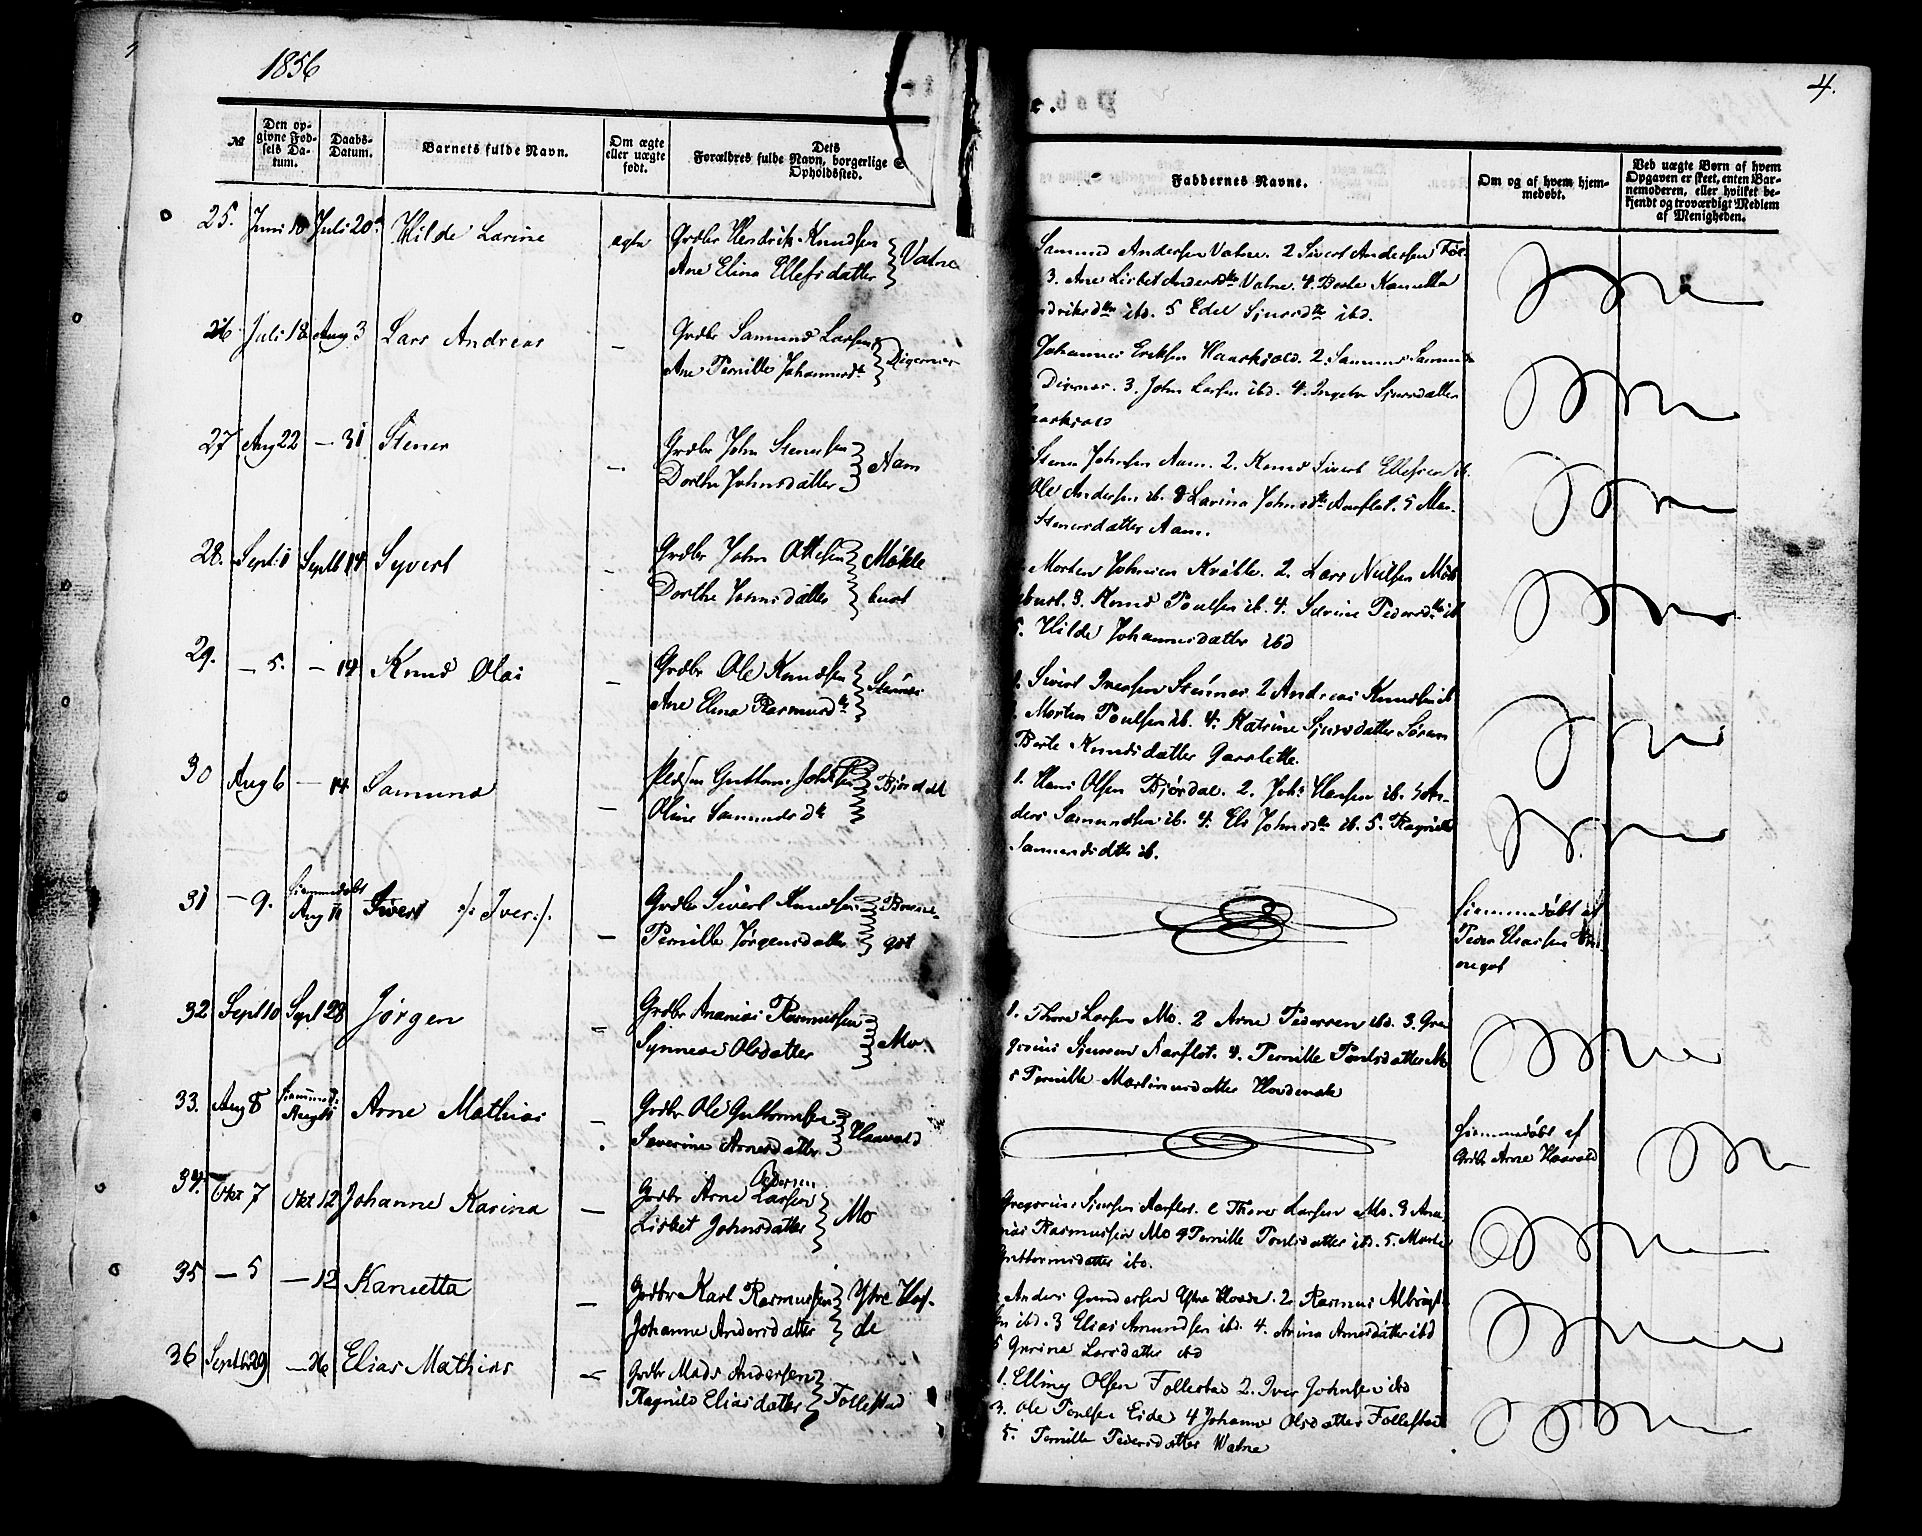 1856
4.
№
Den op-
givne Fød-
sels Da-
tum.
Daabs-
Datum.
Barnets fulde Navn.
Om ægte
eller uægte
født.
Dets
Forældres fulde Navn, borgerlige S
Opholdssted.
Faddernes Navne.
Om og af hvem hjem-
medøbt.
Ved uægte Børn af hvem
Opgaven er skeet, enten Bar-
nemoderen, eller hvilket be-
kjendt og troværdigt Medlem
af Menigheden.
25. Juni 10 Juli 20 Hilde Larine ægte Grdbr Hendrik Knudsen
Ane Elina Ellefsdatter Vatne
Samund Andersen Vatne. 2 Sivert Andersen
3. Ane Lisbet Andersdtr Vatne. 4. Berte
ibd. 5 Edel Sjursdtr ibd.
26 Juli 18 Aug 3 Lars Andreas — Grdbr Samund Larsen
Ane Pernille Johannesdtr Digernes
Johannes Eriksen Haaskjold. 2. Samund
Digernes. 3. John Larsen ibd. 4. Ingebr Sjursdatter
27 Aug 22 — 31 Stener — Grdbr John Stenersen
Dorthe Johnsdatter Aam
Stener Johnsen Aam. 2. Knud Sivert Ellefsen ib.
Ole Andersen ib. Larina Johnsdtr Aarflot. 5 Mar-
Stenersdatter Aam.
28. Sept: 1 Septb 14 Syvert - Grdbr John Ottesen
Dorthe Jonnsdatter Møkle
bust
Morten Johnsen Kvitle. 2. Lars Nilsen Møk
bust. 3. Knud Poulsen ib. 4. Serine Pedersdtr ib
5. Hilde Johannesdatter ibd
29. — 5. — 14 Knud Olai — Grdbr Ole Knudsen
Ane Elena Rasmusdtr Stennes
1. Sivert Iversen Stennes. 2 Andreas Knudsen ib
Morten Poulsen ib. 4. Katrine Sjursdatter
Berte Knudsdatter
30 Aug 6 — 14 Samund — Guttorm
Oline Samundsdtr Bjørdal
1. Hans Olsen Bjørdal. 2. Johs Hansen ib. 3 An-
ders Samundsen ib. 4. Els Johnsdtr ib. 5. Ragnille
Samundsdtr ib.
31 — 9. hiemmedøbt
Aug 11 Sivert /: Iver :/. — Grdbr Sivert Knudsen
Pernille Jørgensdatter
hiemmedøbt af
Peder Eliassen
32 Sept 10 Sept 28 Jørgen - Grdbr Ananias Rasmussen
Synneve Olsdatter Mo
1. Thore Larsen Mo. 2 Arne Pedersen ibd. 3. Gre-
gorius Sjursen Aarflot. 4. Pernille Poulsdatter Mo
5 Pernille Martinusdatter Hovdenak
33. Aug 8 hiemmed:
Aug 11 Arne Mathias — Grdbr Ole Guttormsen
Severine Arnesdatter Haavold
hiemmedøbt af
Grdbr Arne Haavold
34. Okt 7 Okt 12 Johanne Karina — Pedersen
Grdbr Arne Larsen
Lisbet Johnsdatter Mo
Gregorius Sjursen Aarflot. 2 Thore Larsen Mo. 3 Ana-
nias Rasmussen Mo 4 Pernille Poulsdatter ibd. 5. Marte
Guttormsdatter ibd.
35 — 5 — 12 Kanutta — Grdbr Karl Rasmussen
Johanne Andersdatter Ytre Hov-
de
Anders Gundersen Ytre Hovde. 2. Rasmus Albrigt-
sen ibd. 3 Elias Amundsen ibd. 4. Anna Arnesdatter ibd
5 Gurine Larsdatter ibd
36 Septb 29 — 26 Elias Mathias — Grdbr Mads Andersen
Ragnild Eliasdatter Follestad
1. Elling Olsen Follestad 2. Iver Johnsen ibd
3. Ole Poulsen Eide 4 Johanne Olsdatter Follestad
5. Pernille Pedersdatter Watne